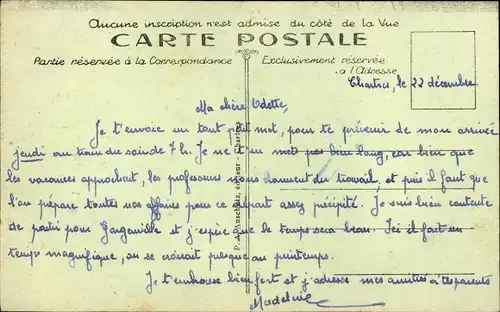 Aucune inscription n'est admise du côté de la Vue
CARTE POSTALE
Partie réservée à la Correspondance
Exclusivement réservée
à l'Adresse
Chartres, le 22 décembre
Ma chère Odette,
Je t'envoie un tout petit mot, pour te prévenir de mon arrivée
jeudi au train du soir de 7 h. Je ne t'en mets pas bien long, car bien que
les vacances approchent, les professeurs nous donnent du travail, et puis il faut que
l'on prépare toutes nos affaires pour ce départ assez précipité. Je suis bien contente
de partir pour Gargenville et j'espère que le temps sera beau. Ici il fait un
temps magnifique, on se croirait presque au printemps.
Je t'embrasse bien fort et j'adresse mes amitiés à tes parents
Madeleine
éditeur - Chartres